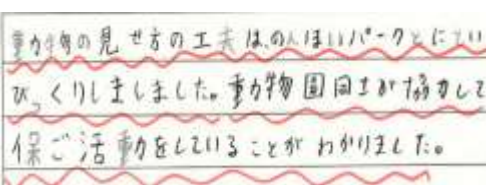 動物の見せ方の工夫は、のんほいパークとにてい
びっくりしましました。動物園同士が協力して
保ご活動をしていることがわかりました。